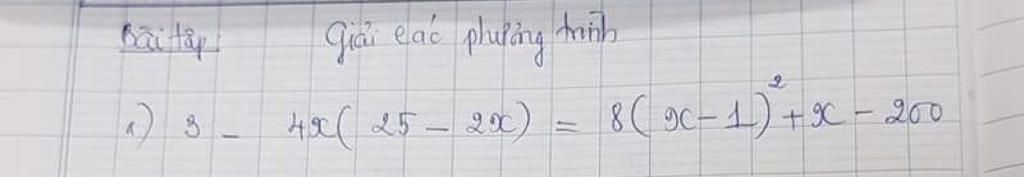 Bài tập Giải các phương trình
1) 3 - 4x( 25 - 2x) = 8( x - 1)² + x - 200